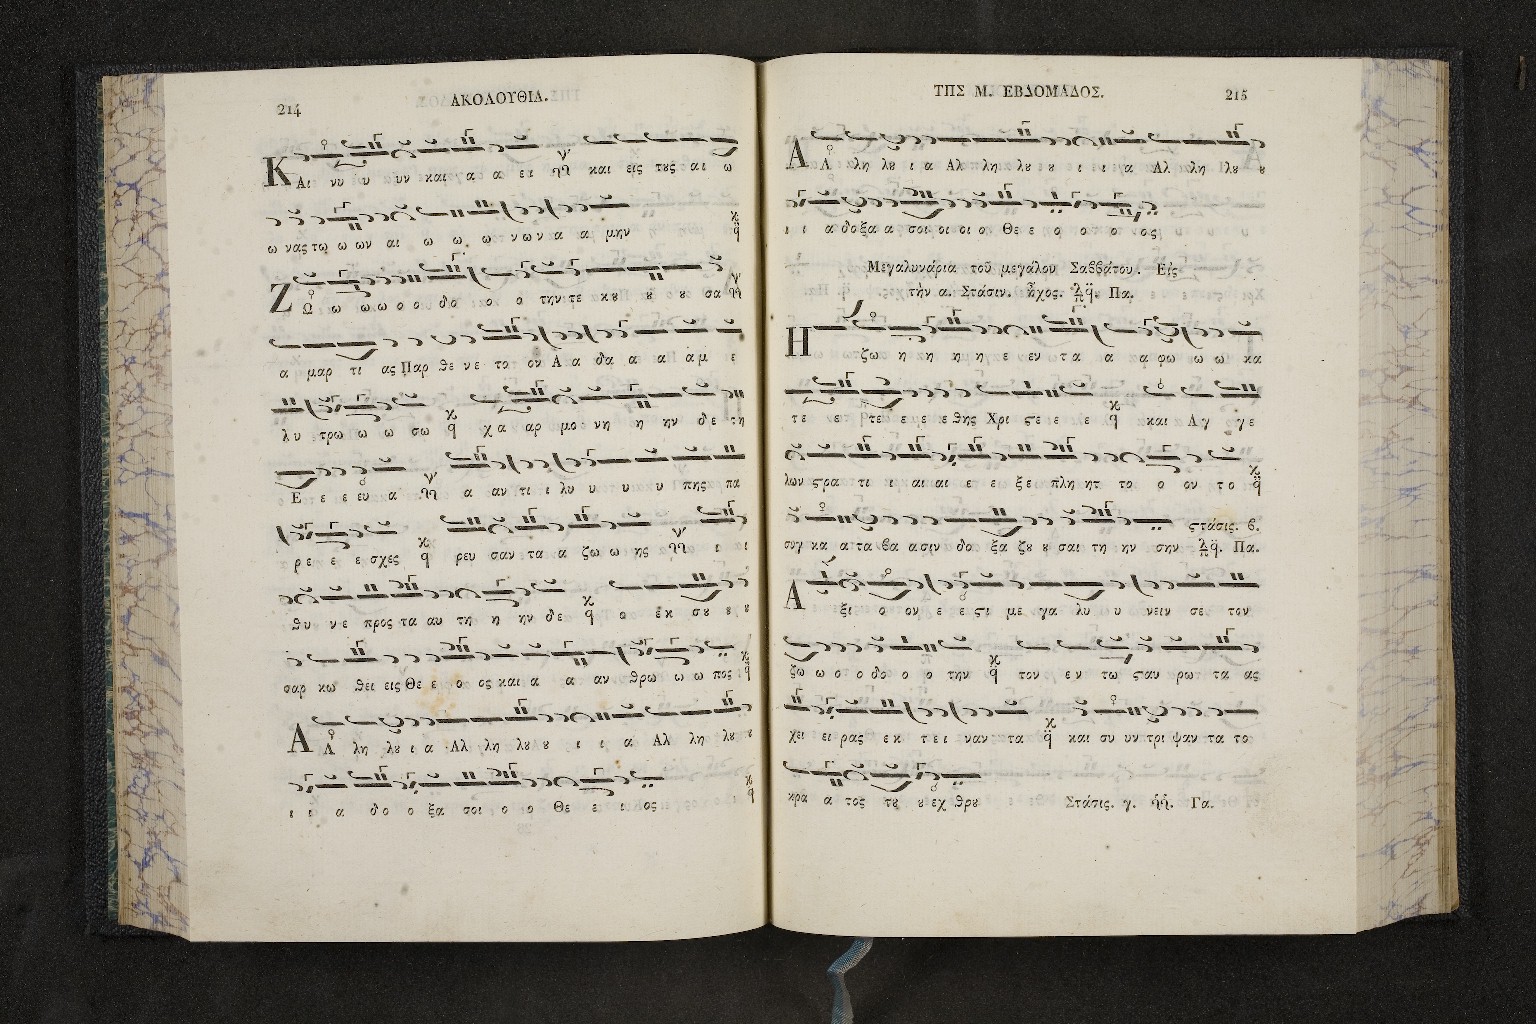 214 ΑΚΟΛΟΥΘΙΑ.
ΚΑι νυ υ υν και α α ει και εις τȣς αι ω
ω νας τω ω ων αι ω ω ω νων α α μην
ΖΩ ω ω ω ο ο δο κο ο την τε κȣ ȣ ȣ ȣ σα
α μαρ τι ας Παρ θε νε το ον Α α δα α α αμ ε
λυ τρω ω ω σω χα αρ μο νη η ην δε τη
Ε ε ε ευ α α αν τι ι λυ υ υ υ πης πα
ρε ε ε σχες ρευ σαν τα α ζω ω ης ι ι
θυ νε προς τα αυ τη η ην δε ο εκ σȣ ȣ ȣ
σαρ κω θει εις Θε ε ο ος και α α αν θρω ω ω πος
ΑΛ λη λȣ ι α Αλ λη λȣ ȣ ι ι α Αλ λη λȣ ȣ
ι ι α δο ο ξα σοι ο ο Θε ε ι ι ος
ΤΗΣ Μ. ΕΒΔΟΜΑΔΟΣ. 215
ΑΛ λη λȣ ι α Αλ λη λȣ ȣ ι ι α Αλ λη λȣ ȣ
ι ι α δοξα α σοι οι οι ο Θε ε ο ο ο ος
Μεγαλυνάρια τοῦ μεγάλου Σαββάτου. Εἰς
τὴν α. Στάσιν. ἦχος. Πα.
Η ζω η η η η ε εν τα α α φω ω ω κα
τε ε τε ε ε ε θης Χρι ϛε ε ε και Αγ γε
λων ϛρα τι ι αι αι ε ε ξε πλη ητ το ο ον το
συγ κα α τα βα ασιν δο ξα ζȣ ȣ σαι τη ην σην Πα. ϛτάσις. β.
Αξι ο ον ε ε ϛι με γα λυ υ νειν σε τον
ζω ω ο ο δο ο ο την τον εν τω ϛαυ ρω τα ας
χει ει ρας εκ τει ναν τα και συ υν τρι ψαν τα το
κρα α τος τȣ ȣ εχ θρȣ Στάσις. γ. Γα.